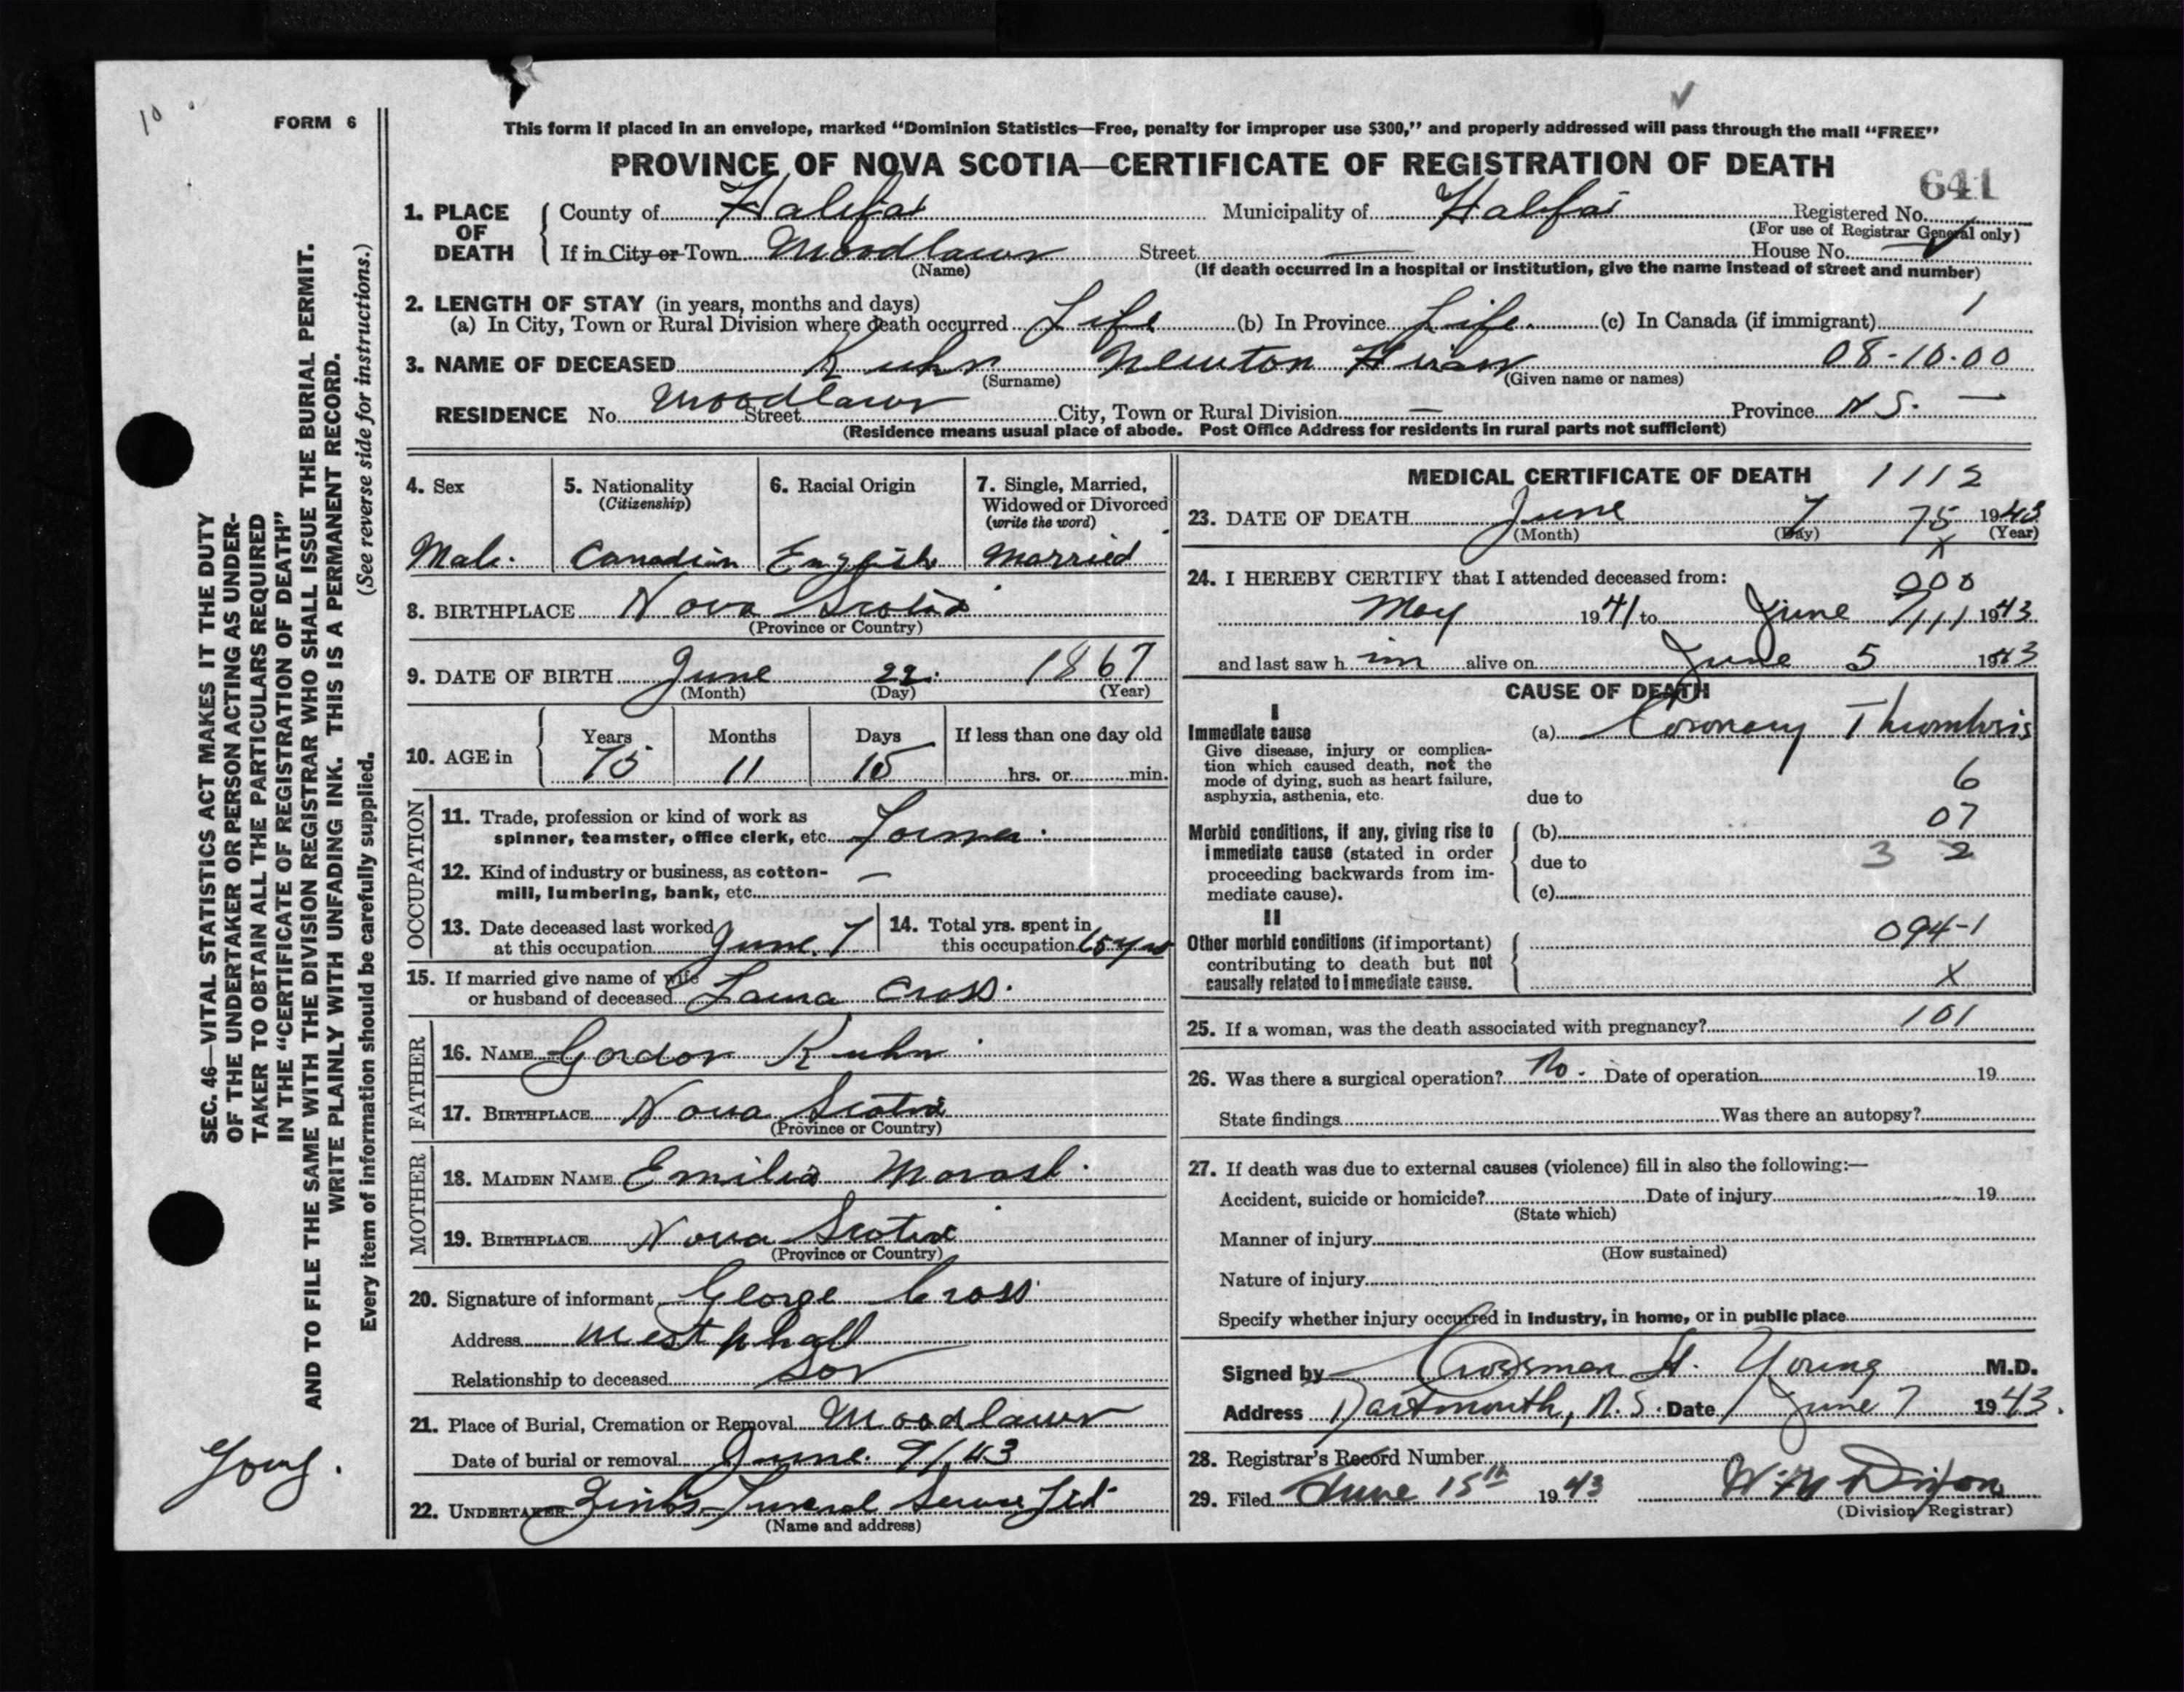 10
FORM 6
This form if placed in an envelope, marked “Dominion Statistics—Free, penalty for improper use $300,” and properly addressed will pass through the mail “FREE”
PROVINCE OF NOVA SCOTIA—CERTIFICATE OF REGISTRATION OF DEATH
641
1. PLACE OF DEATH
County of Halifax Municipality of Halifax Registered No.
(For use of Registrar General only)
If in City or Town Woodlawn Street — House No. —
(Name) (If death occurred in a hospital or institution, give the name instead of street and number)
2. LENGTH OF STAY (in years, months and days)
(a) In City, Town or Rural Division where death occurred Life (b) In Province Life. (c) In Canada (if immigrant) 1
3. NAME OF DECEASED Kuhn Newton Hiram 08-10-00
(Surname) (Given name or names)
RESIDENCE No. Woodlawn Street City, Town or Rural Division — Province N S. —
(Residence means usual place of abode. Post Office Address for residents in rural parts not sufficient)
4. Sex
Male.
5. Nationality
(Citizenship)
Canadian
6. Racial Origin
English
7. Single, Married,
Widowed or Divorced
(write the word)
Married
8. BIRTHPLACE Nova Scotia
(Province or Country)
9. DATE OF BIRTH June 22. 1867
(Month) (Day) (Year)
10. AGE in
Years Months Days If less than one day old
75 11 15 hrs. or min.
OCCUPATION
11. Trade, profession or kind of work as
spinner, teamster, office clerk, etc. Farmer.
12. Kind of industry or business, as cotton-
mill, lumbering, bank, etc. —
13. Date deceased last worked
at this occupation June. 7
14. Total yrs. spent in
this occupation 65 yrs
15. If married give name of wife
or husband of deceased Laura Cross.
FATHER
16. NAME Gordon Kuhn
17. BIRTHPLACE Nova Scotia
(Province or Country)
MOTHER
18. MAIDEN NAME Emilia Morash.
19. BIRTHPLACE Nova Scotia
(Province or Country)
20. Signature of informant George Cross
Address Westphall
Relationship to deceased Son
21. Place of Burial, Cremation or Removal Woodlawn
Date of burial or removal June. 9/43
22. UNDERTAKER Zink's Funeral Service Ltd.
(Name and address)
MEDICAL CERTIFICATE OF DEATH 1112
23. DATE OF DEATH June 7 75 1943
(Month) (Day) (Year)
X
24. I HEREBY CERTIFY that I attended deceased from:
000
May 1941 to June 7 111 1943
and last saw h im alive on June 5 1943
CAUSE OF DEATH
I
Immediate cause
Give disease, injury or complica-
tion which caused death, not the
mode of dying, such as heart failure,
asphyxia, asthenia, etc.
(a) Coronary Thrombosis
6
due to
Morbid conditions, if any, giving rise to
immediate cause (stated in order
proceeding backwards from im-
mediate cause).
(b) 07
due to 3 2
(c)
II
Other morbid conditions (if important)
contributing to death but not
causally related to immediate cause.
094-1
X
25. If a woman, was the death associated with pregnancy? 101
26. Was there a surgical operation? No. Date of operation 19
State findings Was there an autopsy?
27. If death was due to external causes (violence) fill in also the following:—
Accident, suicide or homicide? Date of injury 19
(State which)
Manner of injury
(How sustained)
Nature of injury
Specify whether injury occurred in industry, in home, or in public place
Signed by Crossman H. Young M.D.
Address Dartmouth, N.S. Date June 7 1943.
28. Registrar's Record Number
29. Filed June 15th 1943
(Division Registrar)
SEC. 46—VITAL STATISTICS ACT MAKES IT THE DUTY
OF THE UNDERTAKER OR PERSON ACTING AS UNDER-
TAKER TO OBTAIN ALL THE PARTICULARS REQUIRED
IN THE “CERTIFICATE OF REGISTRATION OF DEATH”
AND TO FILE THE SAME WITH THE DIVISION REGISTRAR WHO SHALL ISSUE THE BURIAL PERMIT.
WRITE PLAINLY WITH UNFADING INK. THIS IS A PERMANENT RECORD.
Every item of information should be carefully supplied. (See reverse side for instructions.)
Young.